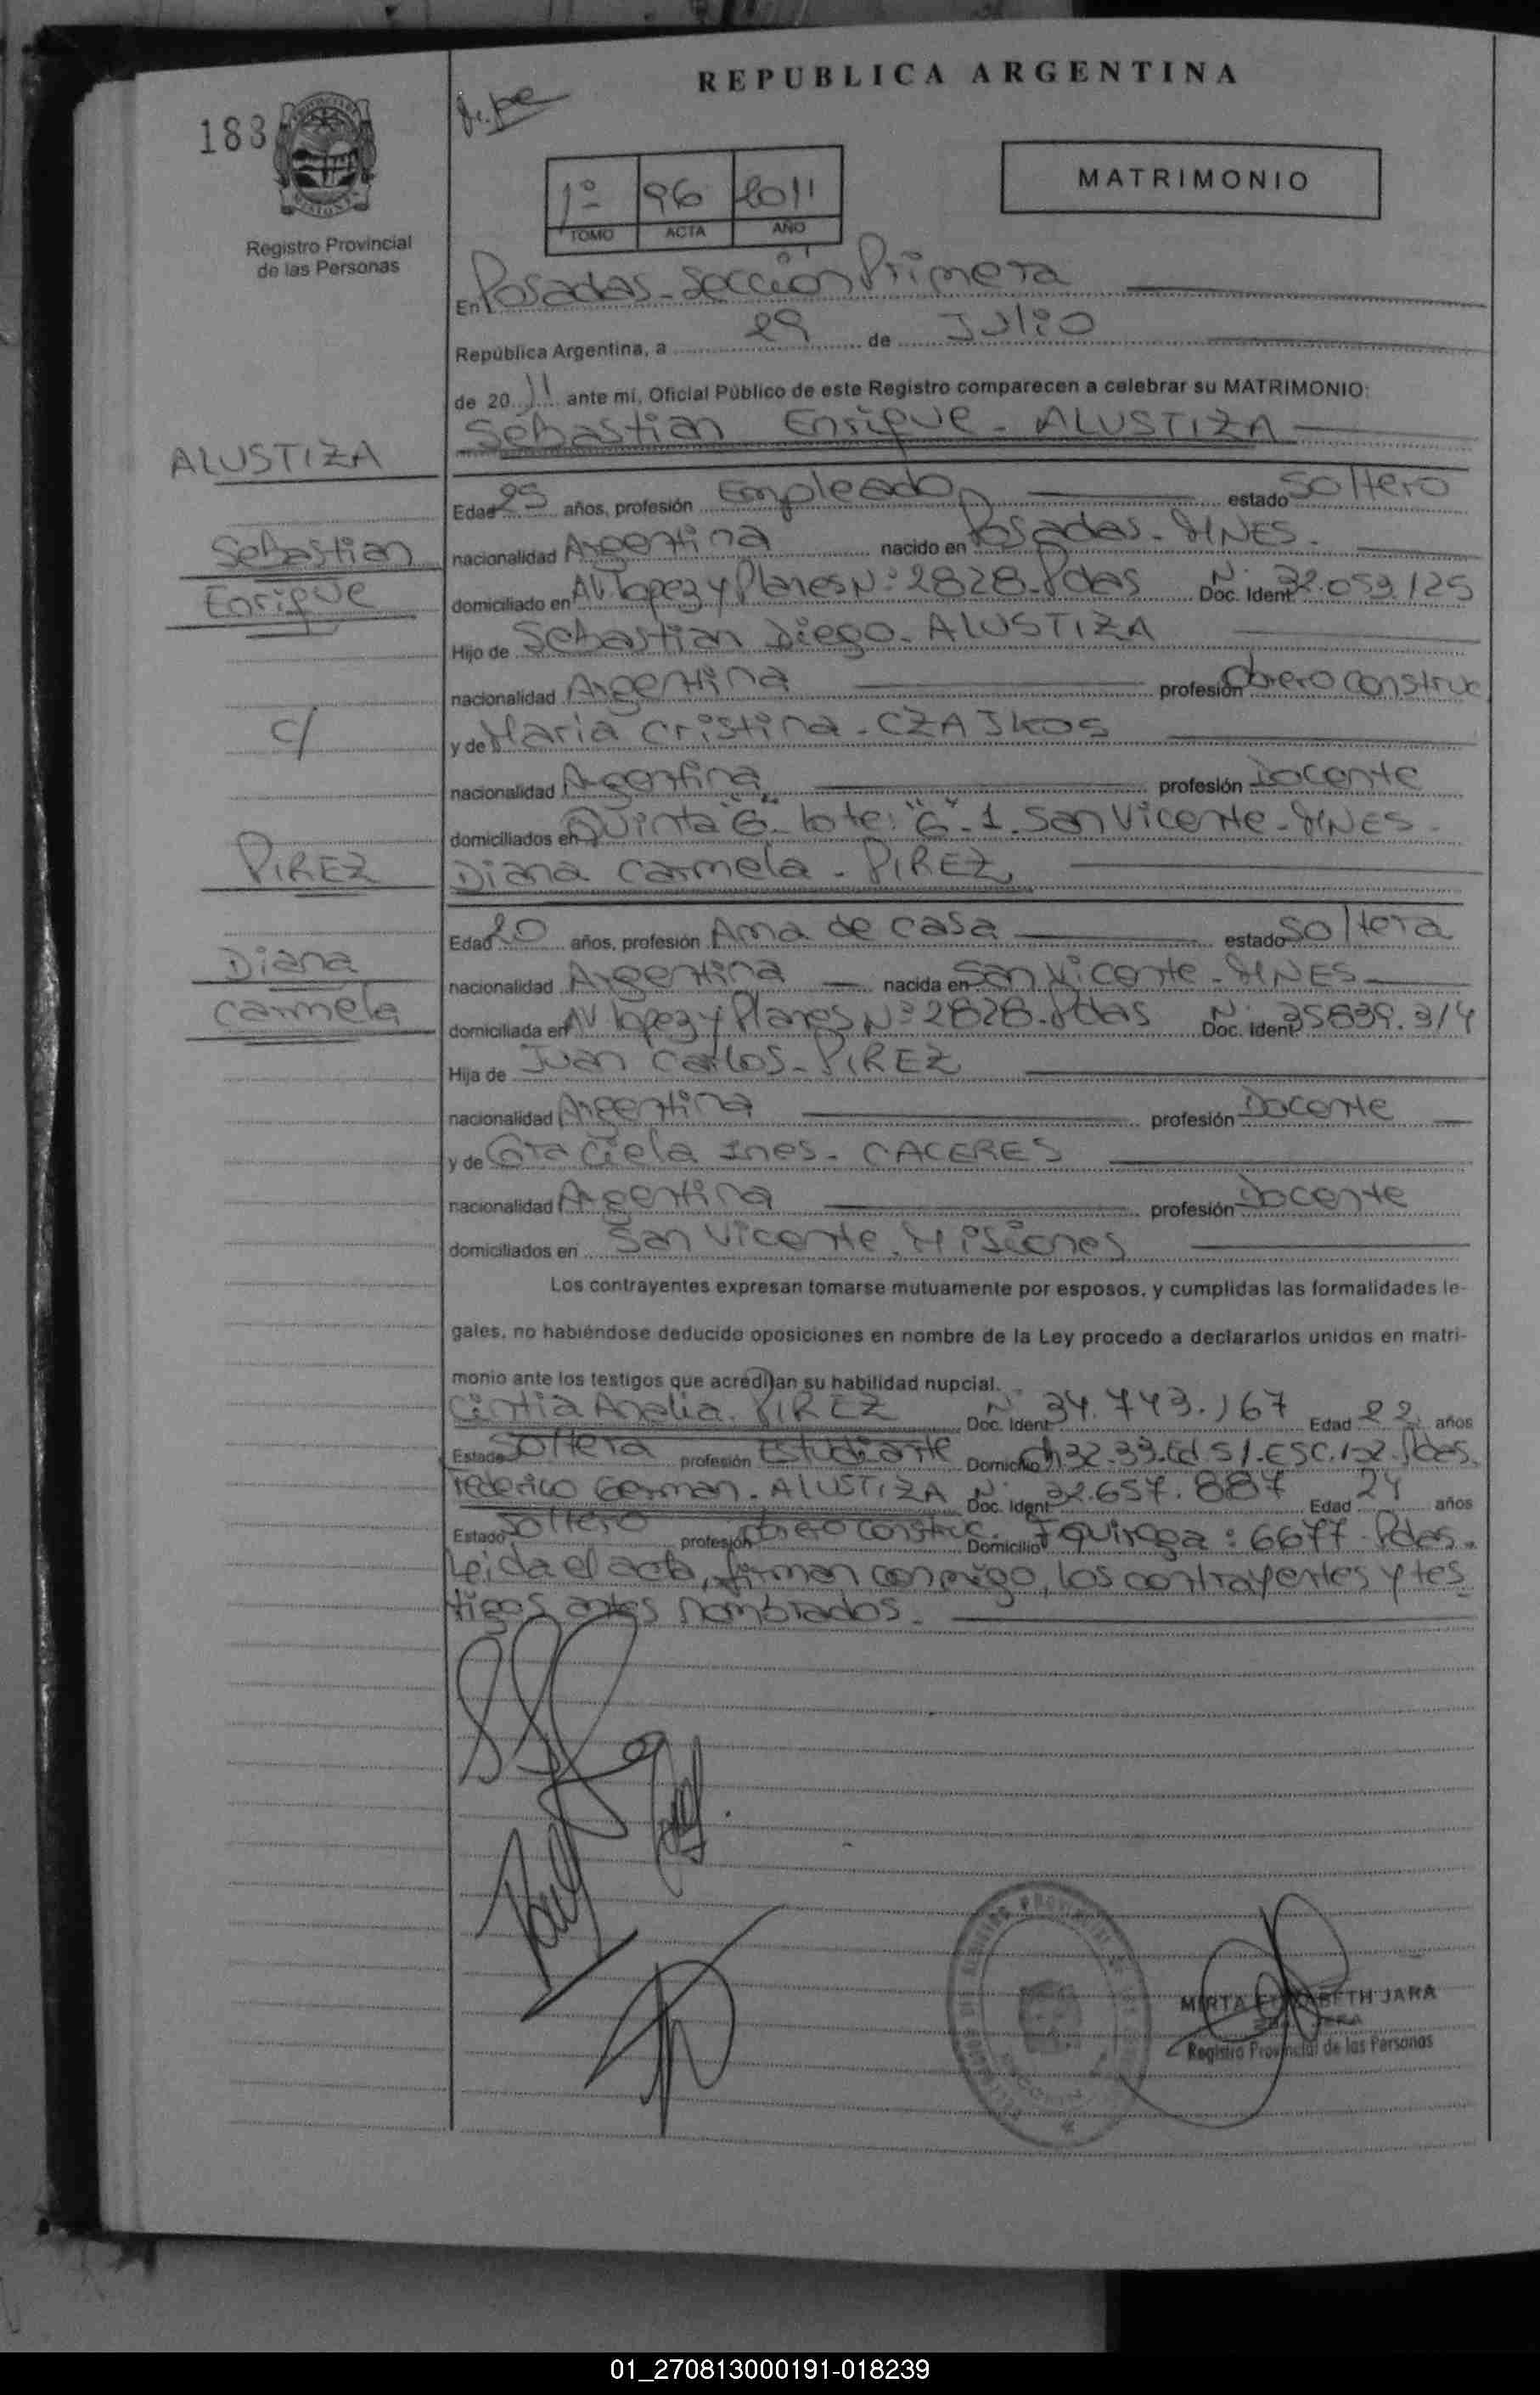 REPUBLICA ARGENTINA
183
1º 96 2011
TOMO ACTA AÑO
MATRIMONIO
Registro Provincial
de las Personas
En Posadas - Sección Primera
República Argentina, a 29 de Julio
de 2011 ante mí, Oficial Público de este Registro comparecen a celebrar su MATRIMONIO:
Sebastian Enrique - ALUSTIZA
ALUSTIZA
Edad 25 años, profesión Empleado estado Soltero
Sebastian
nacionalidad Argentina nacido en Posadas - MNES.
Enrique
domiciliado en AV. Lopez y Planes Nº 2828 - Pdas Doc. Ident. Nº 32.053.125
Hijo de Sebastian Diego - ALUSTIZA
nacionalidad Argentina profesión obrero construc
c/
y de Maria Cristina - CZAJKOS
nacionalidad Argentina profesión Docente
domiciliados en Quinta "G" - lote: "G" - 1 - San Vicente - MNES -
PIREZ
Diana Carmela - PIREZ
Edad 20 años, profesión Ama de casa estado Soltera
Diana
nacionalidad Argentina nacida en San Vicente - MNES
Carmela
domiciliada en AV. Lopez y Planes Nº 2828 - Pdas Doc. Ident. Nº 35839.314
Hija de Juan Carlos - PIREZ
nacionalidad Argentina profesión Docente
y de Graciela Ines - CACERES
nacionalidad Argentina profesión Docente
domiciliados en San Vicente. Misiones
Los contrayentes expresan tomarse mutuamente por esposos, y cumplidas las formalidades le-
gales, no habiéndose deducido oposiciones en nombre de la Ley procedo a declararlos unidos en matri-
monio ante los testigos que acreditan su habilidad nupcial.
Cintia Analia. PIREZ Doc. Ident. Nº 34.743.167 Edad 22 años
Estado Soltera profesión Estudiante Domicilio Ch 32-33. Ed. 51. ESC. 152. Pdas.
Federico German - ALUSTIZA Doc. Ident. Nº 32.657.887 Edad 24 años
Estado Soltero profesión obrero construc. Domicilio F Quiroga: 6677 - Pdas.
Leida el acta, firman conmigo, los contrayentes y tes
tigos antes nombrados.
MIRTA ELIZABETH JARA
Registro Provincial de las Personas
01_270813000191-018239